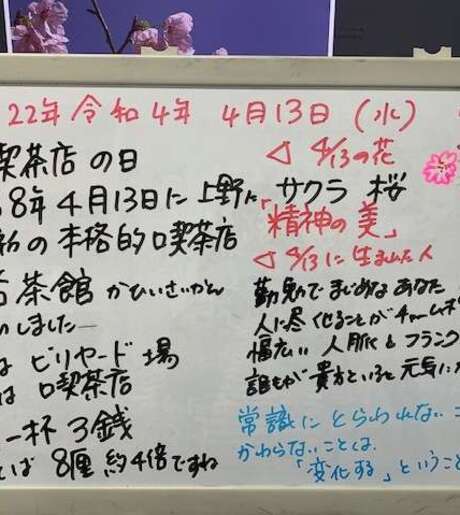 22年 令和4年 4月13日（水）
喫茶店 の日
8年4月13日に 上野に
の 本格的 喫茶店
茶館 かひいさかん
しました
は ビリヤード 場
は 喫茶店
一杯 3銭
ば 8厘 約4倍ですね
◁ 4/13の花
サクラ 桜
「精神の美」
◁ 4/13に 生まれた人
勤勉で まじめな あなた
人に尽くせることがチャーム
幅広い 人脈と フランク
誰もが 貴方といると 元気に
常識に とらわれない
かわらない ことは
「変化する」ということ